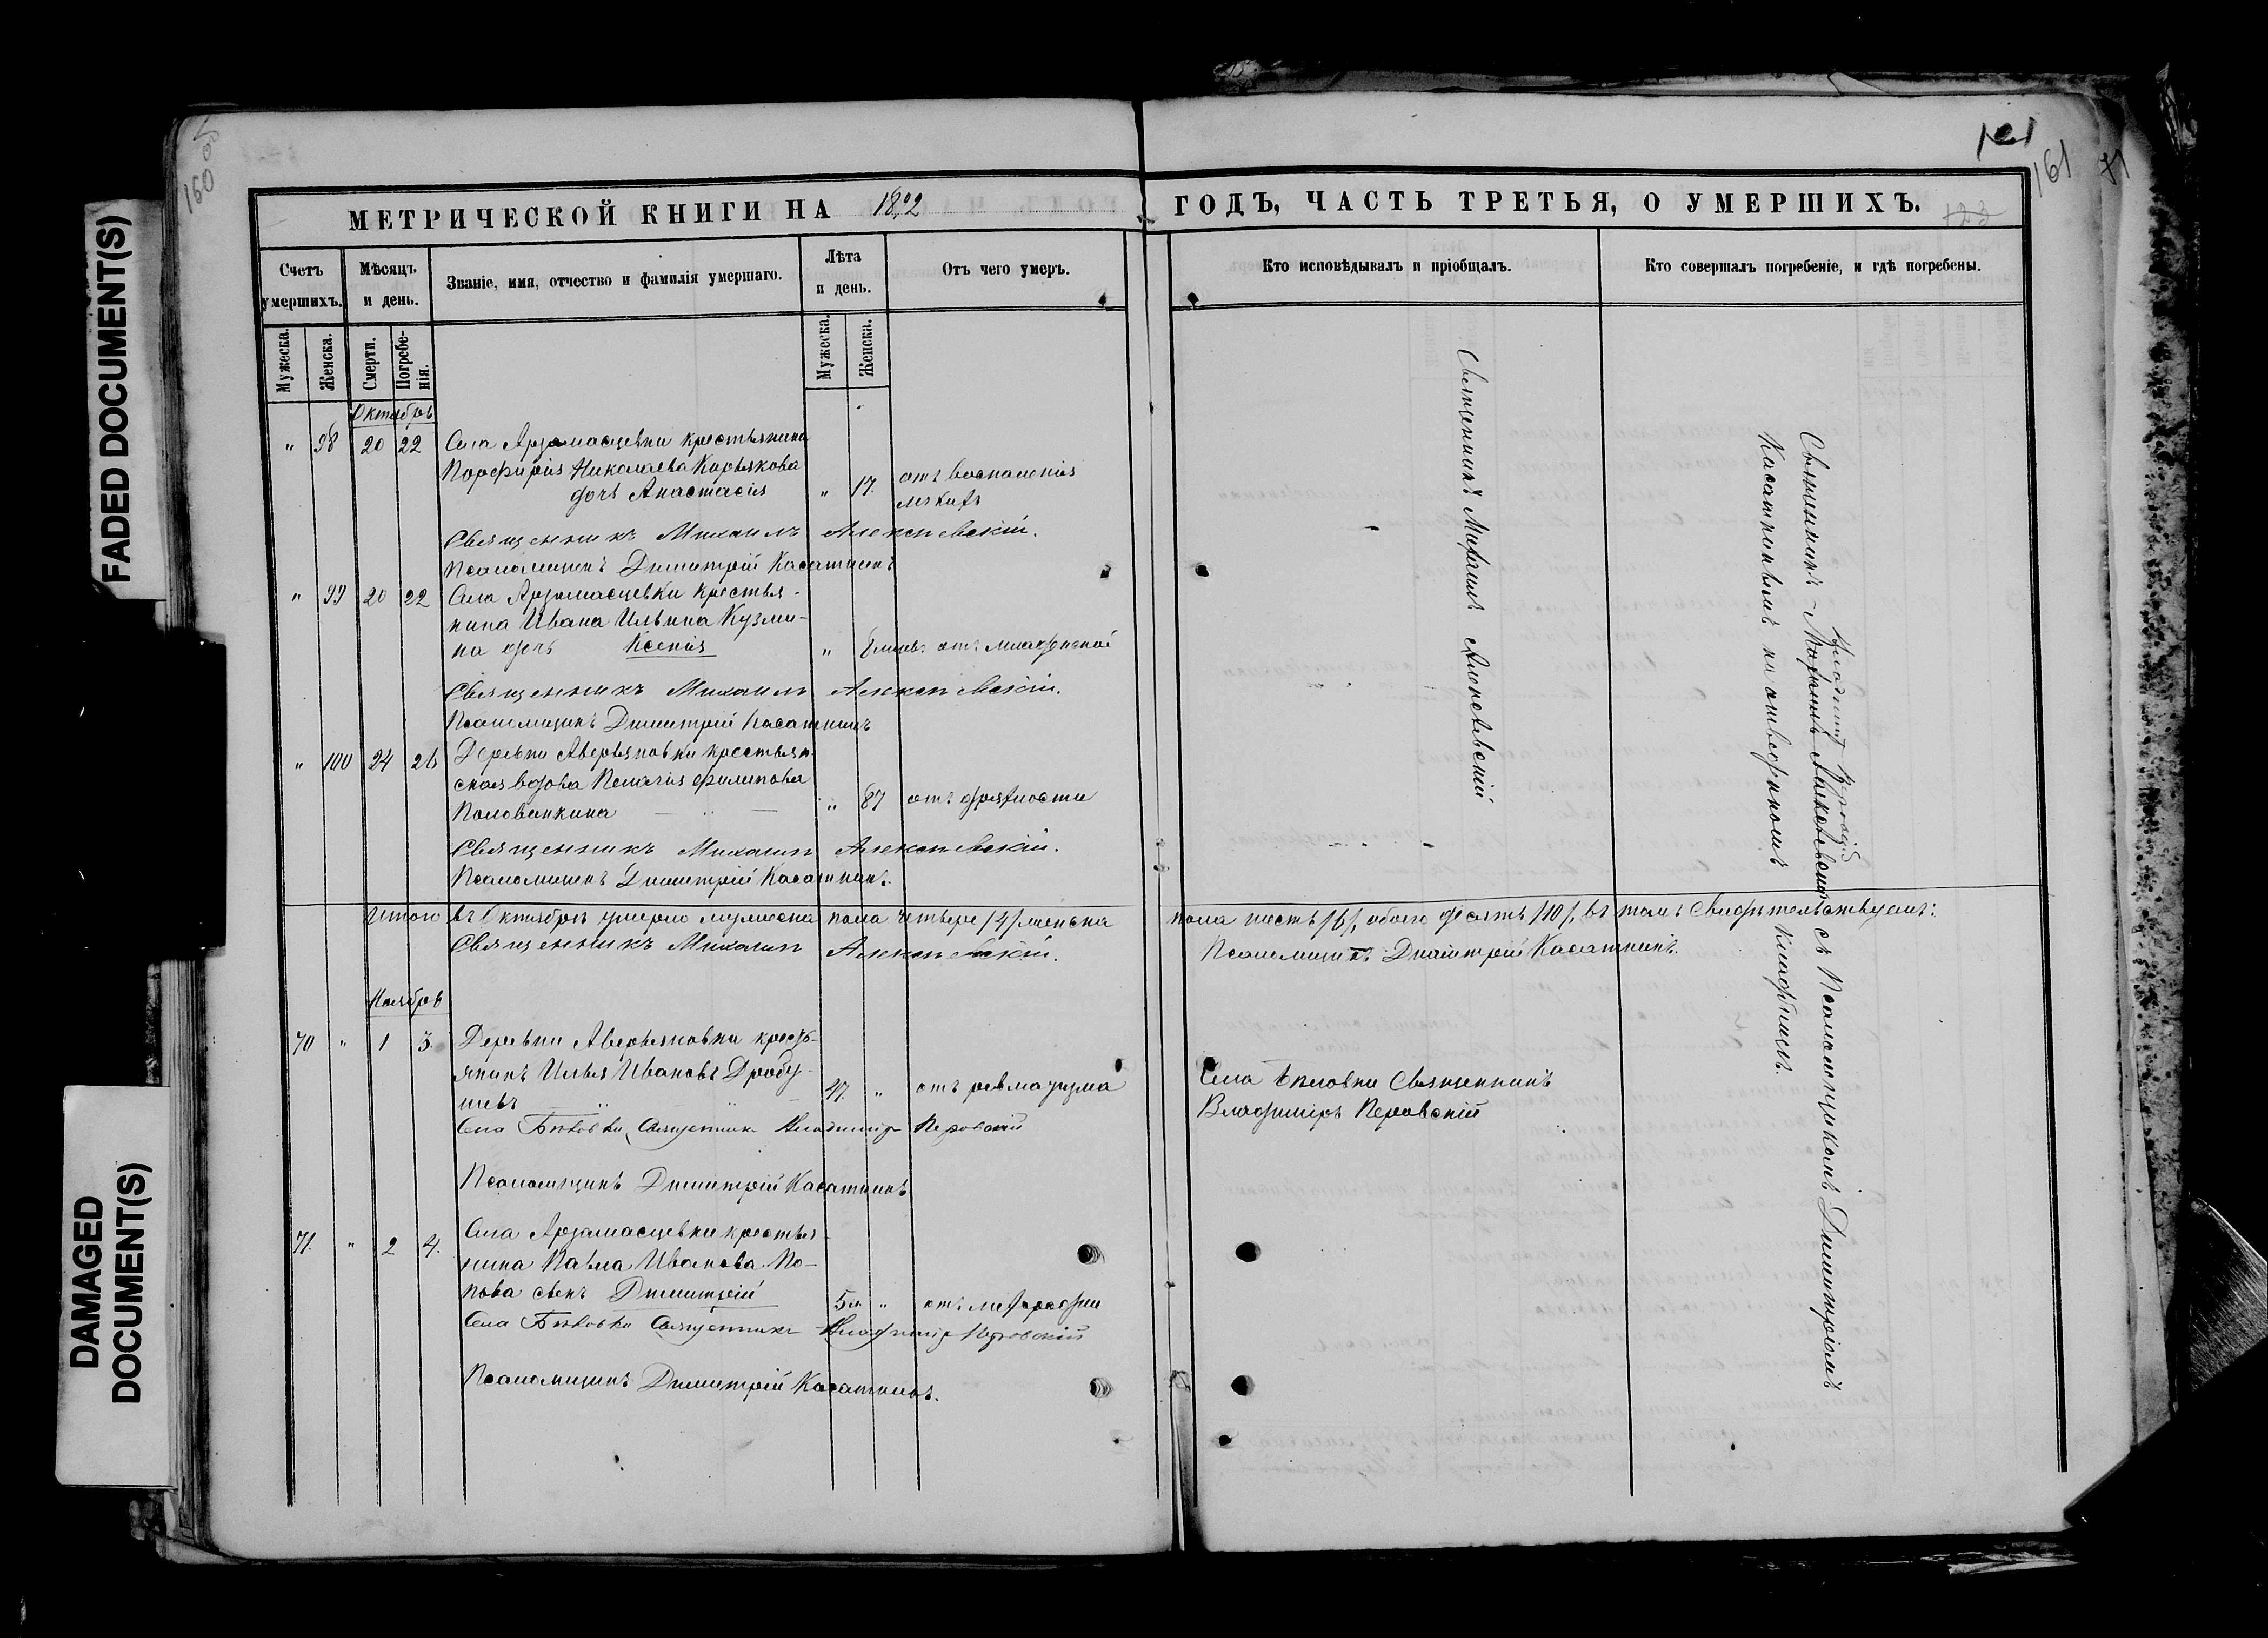 FADED DOCUMENT(S)
DAMAGED
DOCUMENT(S)
160
121
161
71
123
МЕТРИЧЕСКОЙ КНИГИ НА 1802
ГОДЪ, ЧАСТЬ ТРЕТЬЯ, О УМЕРШИХЪ.
Счетъ умершихъ.
Мѣсяцъ и день.
Званіе, имя, отчество и фамилія умершаго.
Лѣта и день.
Отъ чего умеръ.
Кто исповѣдывалъ и пріобщалъ.
Кто совершалъ погребеніе, и гдѣ погребены.
Мужеска.
Женска.
Смерти.
Погребенія.
Мужеска.
Женска.
Октябрь
" 98 20 22 Села Арзамасцевки крестьянина
Порфирія Николаева Кирьякова
дочь Анастасія " 17. отъ воспаленія
легкихъ
Священникъ Михаилъ Алексѣевскій.
Псаломщикъ Димитрій Касаткинъ
" 99 20 22 Села Арзамасцевки крестья-
нина Ивана Ильина Кузми-
на дочь Ксенія " отъ младенской
Священникъ Михаилъ Алексѣевскій.
Псаломщикъ Димитрій Касаткинъ
" 100 24 26 Деревни Аверьяновки крестьян-
ская вдова Пелагія Филипова
Половинкина " 87 отъ дряхлости
Священникъ Михаилъ Алексѣевскій.
Псаломщикъ Димитрій Касаткинъ.
Итого въ Октябрѣ умерло мужеска пола четверо /4/ женска
пола шесть /6/, обоего десять /10/, въ томъ свидѣтельствуемъ:
Священникъ Михаилъ Алексѣевскій.
Псаломщикъ Димитрій Касаткинъ.
Ноябрь
70 " 1 3. Деревни Аверьяновки кресть-
янинъ Илья Ивановъ Дробу-
шевъ 47. " отъ ревматизма
Села Бѣловки Священникъ
Владиміръ Перовскій
Села Бѣловки Священникъ Владиміръ Перовскій
Псаломщикъ Димитрій Касаткинъ
71. " 2 4. Села Арзамасцевки крестья-
нина Павла Иванова По-
пова сынъ Димитрій 5 " отъ лихорадки
Села Бѣловки Священникъ Владиміръ Перовскій
Псаломщикъ Димитрій Касаткинъ.
Священникъ Михаилъ Алексѣевскій
Владиміръ Перовскій
Священникъ Михаилъ Алексѣевскій съ Псаломщикомъ Димитріемъ
Касаткинымъ на отведенномъ кладбищѣ.